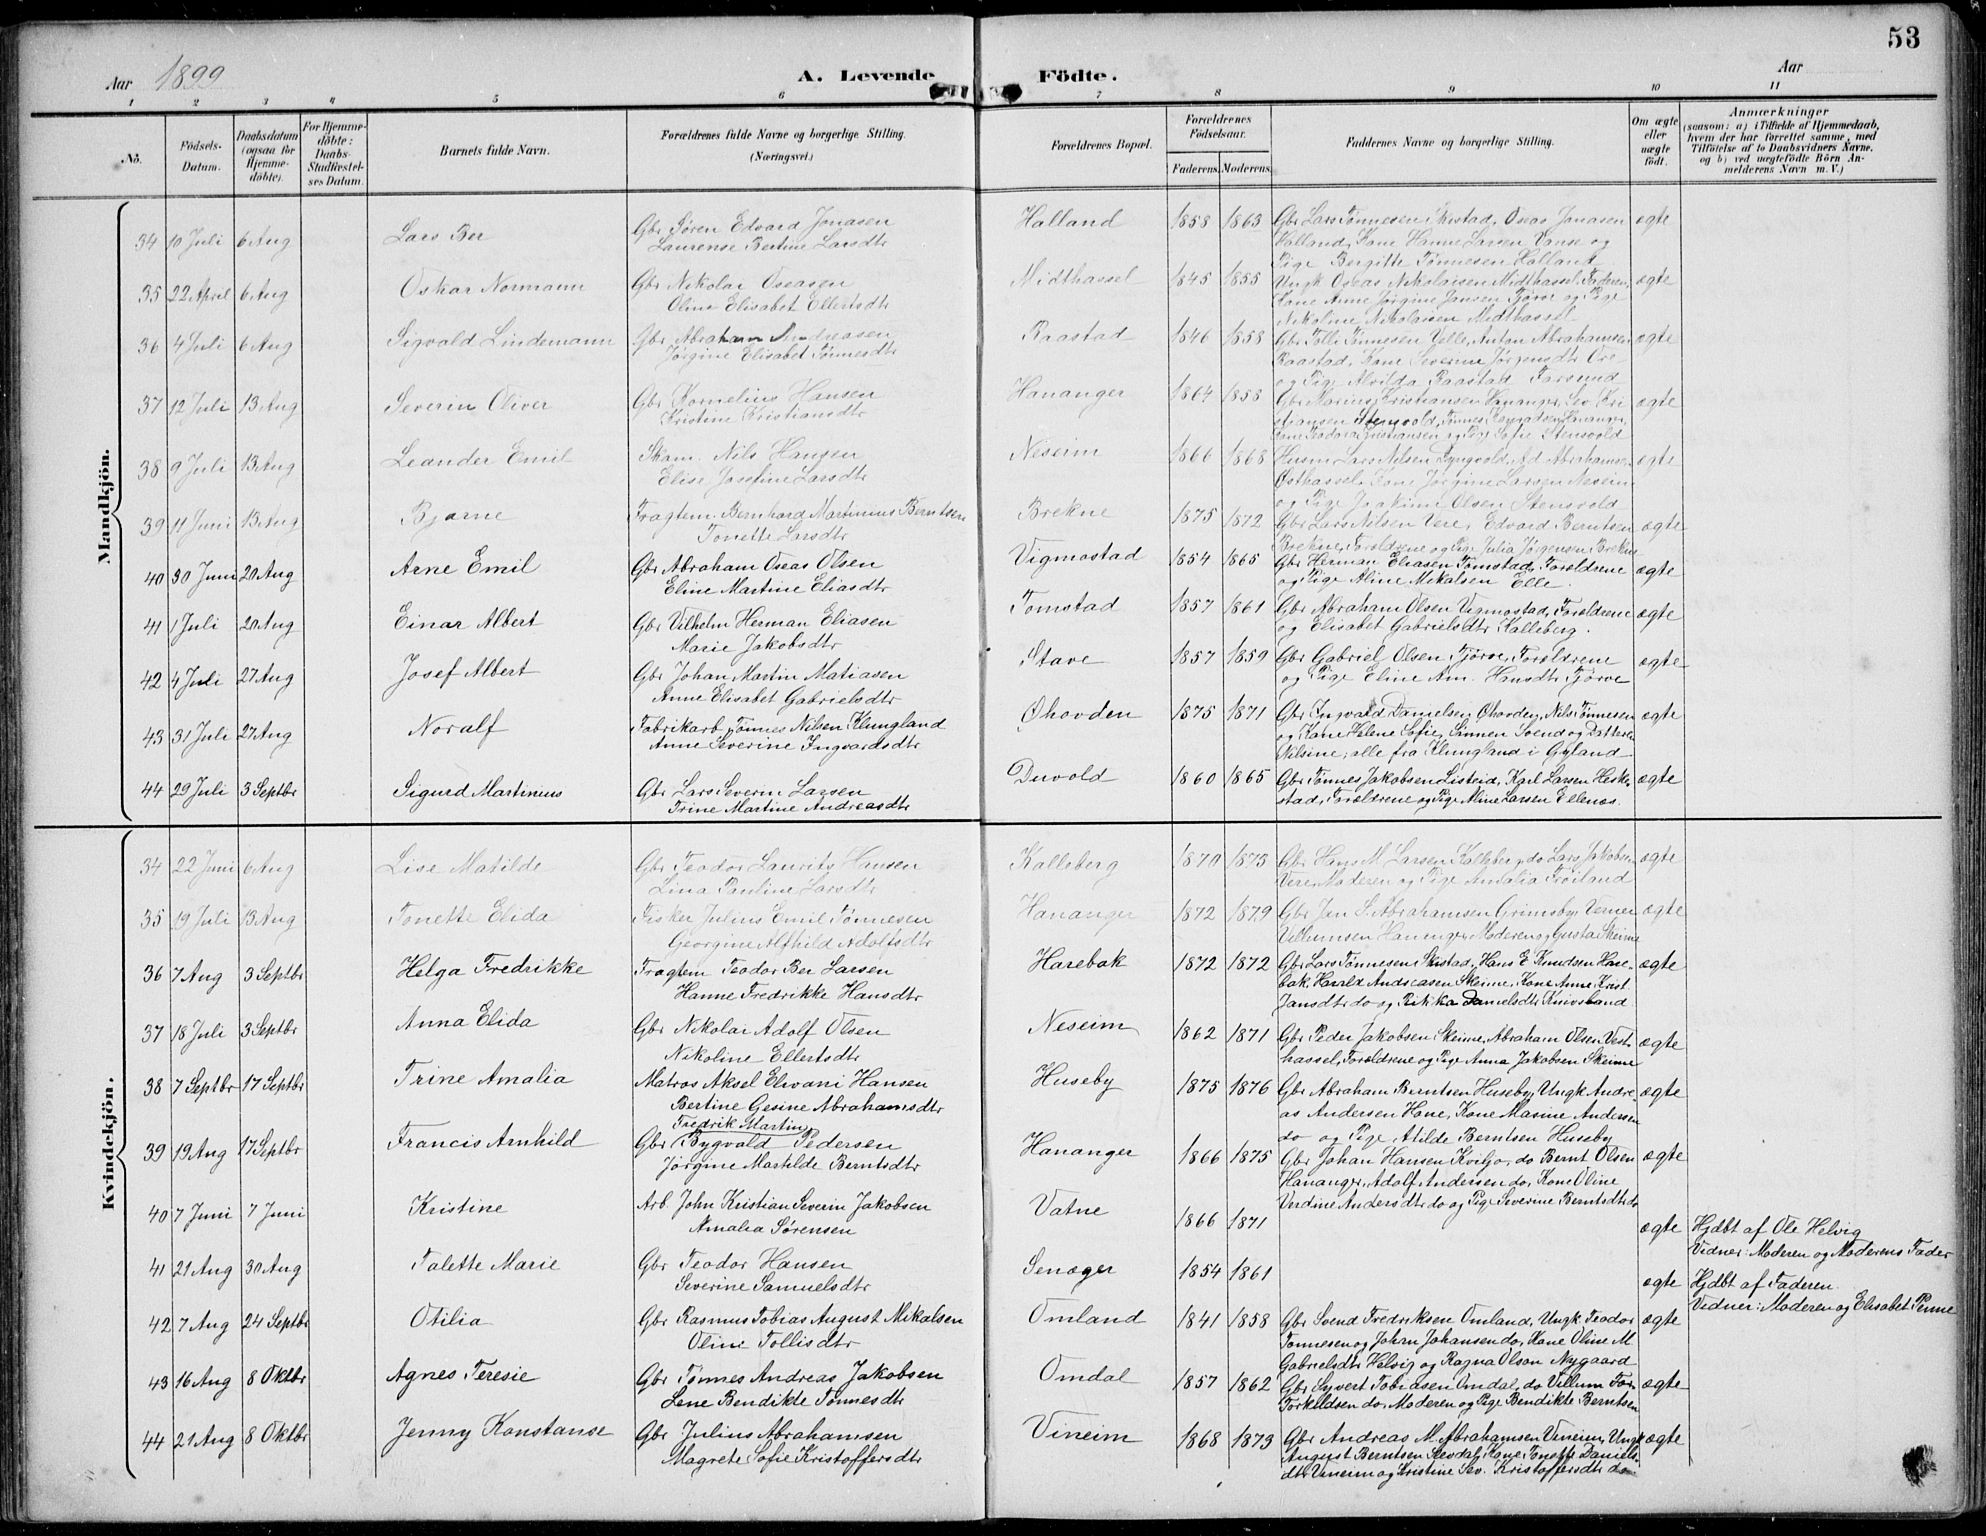 53
Aar 1899 A. Levende Födte. Aar
1 2 3 4 5 6 7 8 9 10 11
No. Födsels-Datum. Daabsdatum (ogsaa for Hjemmedöbte). For Hjemmedöbte: Daabs-Stadfæstelses Datum. Barnets fulde Navn. Forældrenes fulde Navne og borgerlige Stilling. (Næringsvei.) Forældrenes Bopæl. Forældrenes Födselsaar. Faderens. Moderens. Faddernes Navne og borgerlige Stilling. Om ægte eller uægte födt. Anmærkninger (saasom: a) i Tilfælde af Hjemmedaab, hvem der har forrettet samme, med Tilföielse af to Daabsvidners Navne, og b) ved uægtefödte Börn Anmelderens Navn m. V.)
Mandkjön.
34 10 Juli 6 Aug Lars Ber Gbr Søren Edvard Jonasen Halland 1858 1863 Gbr Lars Tønnesen Skistad, Oseas Jonasen ægte
Laurense Bertine Larsdtr Halland, Kone Hanne Larsen Vanse og
Pige Bergitte Tønnesen Halland
35 22 April 6 Aug Oskar Normann Gbr Nikolai Oseasen Midthassel 1845 1855 Ungk Oseas Nikolaisen Midthassel, Faderen, ægte
Oline Elisabet Ellertsdtr Kone Anne Jørgine Jansen Tjørve og Pige
Nikoline Nikolaisen Midthassel
36 4 Juli 6 Aug Sigvald Lindemann Gbr Abraham Andreasen Raastad 1846 1858 Gbr Tolli Tønnesen Velle, Anton Abrahamsen ægte
Jørgine Elisabet Tønnesdtr Raastad, Kone Severine Jørgensdtr Ore
og Pige Alvilda Raastad Farsund
37 12 Juli 13 Aug Severin Oliver Gbr Kornelius Hansen Hananger 1864 1858 Gbr Marius Kristiansen Hananger, Sev. Kri ægte
Kristine Kristiansdtr stiansen Stensvold, Tønnes Hananger,
Kone Teodora Kristiansen og Pige Sofie Stensvold
38 9 Juli 13 Aug Leander Emil Skom. Nils Hansen Neseim 1866 1868 Husm Lars Nilsen Lyngvold, Ad. Abrahamsen ægte
Elise Josefine Larsdtr Østhassel, Kone Jørgine Larsen Neseim
og Pige Joakime Olsen Stensvold
39 11 Juni 13 Aug Bjarne Fragtem. Bernhard Martinius Berntsen Brekne 1875 1872 Gbr Lars Nilsen Vere, Edvard Berntsen ægte
Tonette Larsdtr Brekne, Forældrene og Pige Julia Jørgensen Brekne
40 30 Juni 20 Aug Arne Emil Gbr Abraham Oseas Olsen Vigmostad 1854 1865 Gbr Herman Eliasen Tomstad, Forældrene ægte
Eline Martine Eliasdtr og Pige Aline Mikalsen Elle.
41 1 Juli 20 Aug Einar Albert Gbr Vilhelm Herman Eliasen Tomstad 1857 1861 Gbr Abraham Olsen Vigmostad, Forældrene ægte
Marie Jakobsdtr og Elisabet Gabrielsdtr Kalleberg.
42 4 Juli 27 Aug Josef Albert Gbr Johan Martin Matiasen Stave 1857 1859 Gbr Gabriel Olsen Tjørve, Forældrene ægte
Anne Elisabet Gabrielsdtr og Pige Eline Am. Hansdtr Tjørve
43 31 Juli 27 Aug Noralf Fabrikarb Tønnes Nilsen Klungland Øhovden 1875 1871 Gbr Ingvald Danielsen Øhovden, Nils Tønnesen ægte
Anne Severine Ingvardsdtr og Kone Helene Sofie, Sønnen Svend og Datteren
Nilsine, alle fra Klungland i Gyland
44 29 Juli 3 Septbr Sigurd Martinius Gbr Lars Severin Larsen Duvold 1860 1865 Gbr Tønnes Jakobsen Listeid, Karl Larsen Heske- ægte
Trine Martine Andreasdtr stad, Forældrene og Pige Aline Larsen Ellenes.
Kvindekjön.
34 22 Juni 6 Aug Lise Matilde Gbr Teodor Lauritz Hansen Kalleberg 1870 1873 Gbr Hans M. Larsen Kalleberg, do Lars Jakobsen ægte
Lina Pauline Larsdtr Vere, Moderen og Pige Amalia Frøiland
35 19 Juli 13 Aug Tonette Elida Fisker Julius Emil Tønnesen Hananger 1872 1879 Gbr Jan S. Abrahamsen Grimsby, Verner ægte
Georgine Alfhild Adolfsdtr Villumsen Hananger, Moderen og Gusta Skeime
36 7 Aug 3 Septbr Helga Fredrikke Fragtem Teodor Ber Larsen Harebak 1872 1872 Gbr Lars Tønnesen Skistad, Hans E Knudsen Hare- ægte
Hanne Fredrikke Hansdtr bak, Harald Andreasen Skeime, Kone Anne Krist.
Jansdtr do og Rikika Danielsdtr Knivsland
37 18 Juli 3 Septbr Anna Elida Gbr Nikolai Adolf Olsen Neseim 1862 1871 Gbr Peder Jakobsen Skeime, Abraham Olsen Vest- ægte
Nikoline Ellertsdtr hassel, Forældrene og Pige Anna Jakobsen Skeime
38 7 Septbr 17 Septbr Trine Amalia Matros Aksel Elivani Hansen Huseby 1875 1876 Gbr Abraham Berntsen Huseby, Ungk Andre ægte
Bertine Gesine Abrahamsdtr as Andersen Hone, Kone Masine Andersen
do og Pige Atilde Berntsen Huseby
Fredrik Martin
39 19 Aug 17 Septbr Francis Arnhild Gbr Bygvald Pedersen Hananger 1866 1875 Gbr Johan Hansen Kviljo, do Bernt Olsen ægte
Jørgine Martilde Berntsdtr Hananger, Adolf Andersen do, Kone Oline
Verdine Andersdtr do og Pige Severine Berntsdtr do
40 7 Juni 7 Juni Kristine Arb. John Kristian Severin Jakobsen Vatne 1866 1871 ægte Hjdbt af Ole Helvig
Amalia Sørensen Vidner: Moderen og Moderens Fader
41 21 Aug 30 Aug Talette Marie Gbr Teodor Hansen Senæger 1854 1861 ægte Hjdbt af Faderen.
Severine Samuelsdtr Vidner: Moderen og Elisabet Penne
42 7 Aug 24 Septbr Otilia Gbr Rasmus Tobias August Mikalsen Omland 1841 1858 Gbr Svend Fredriksen Omland, Ungk Teodor ægte
Oline Tollisdtr Tønnesen og Johan Johansen do, Kone Oline M
Gabrielsdtr Helvig og Ragna Olson Nygaard
43 16 Aug 8 Oktbr Agnes Teresie Gbr Tønnes Andreas Jakobsen Omdal 1857 1862 Gbr Syvert Tobiasen Omdal, do Villum Tor- ægte
Lene Bendikte Tønnesdtr Torkildsen do, Moderen og Pige Bendikte Berntsen
44 21 Aug 8 Oktbr Jenny Konstanse Gbr Julius Abrahamsen Vineim 1868 1873 Gbr Andreas M. Abrahamsen Vineim, Ungk ægte
Magrete Sofie Kristoffersdtr August Berntsen Sevdal, Kone Tonette Daniels-
dtr Vineim og Kristine Sev. Kristoffersdtr do